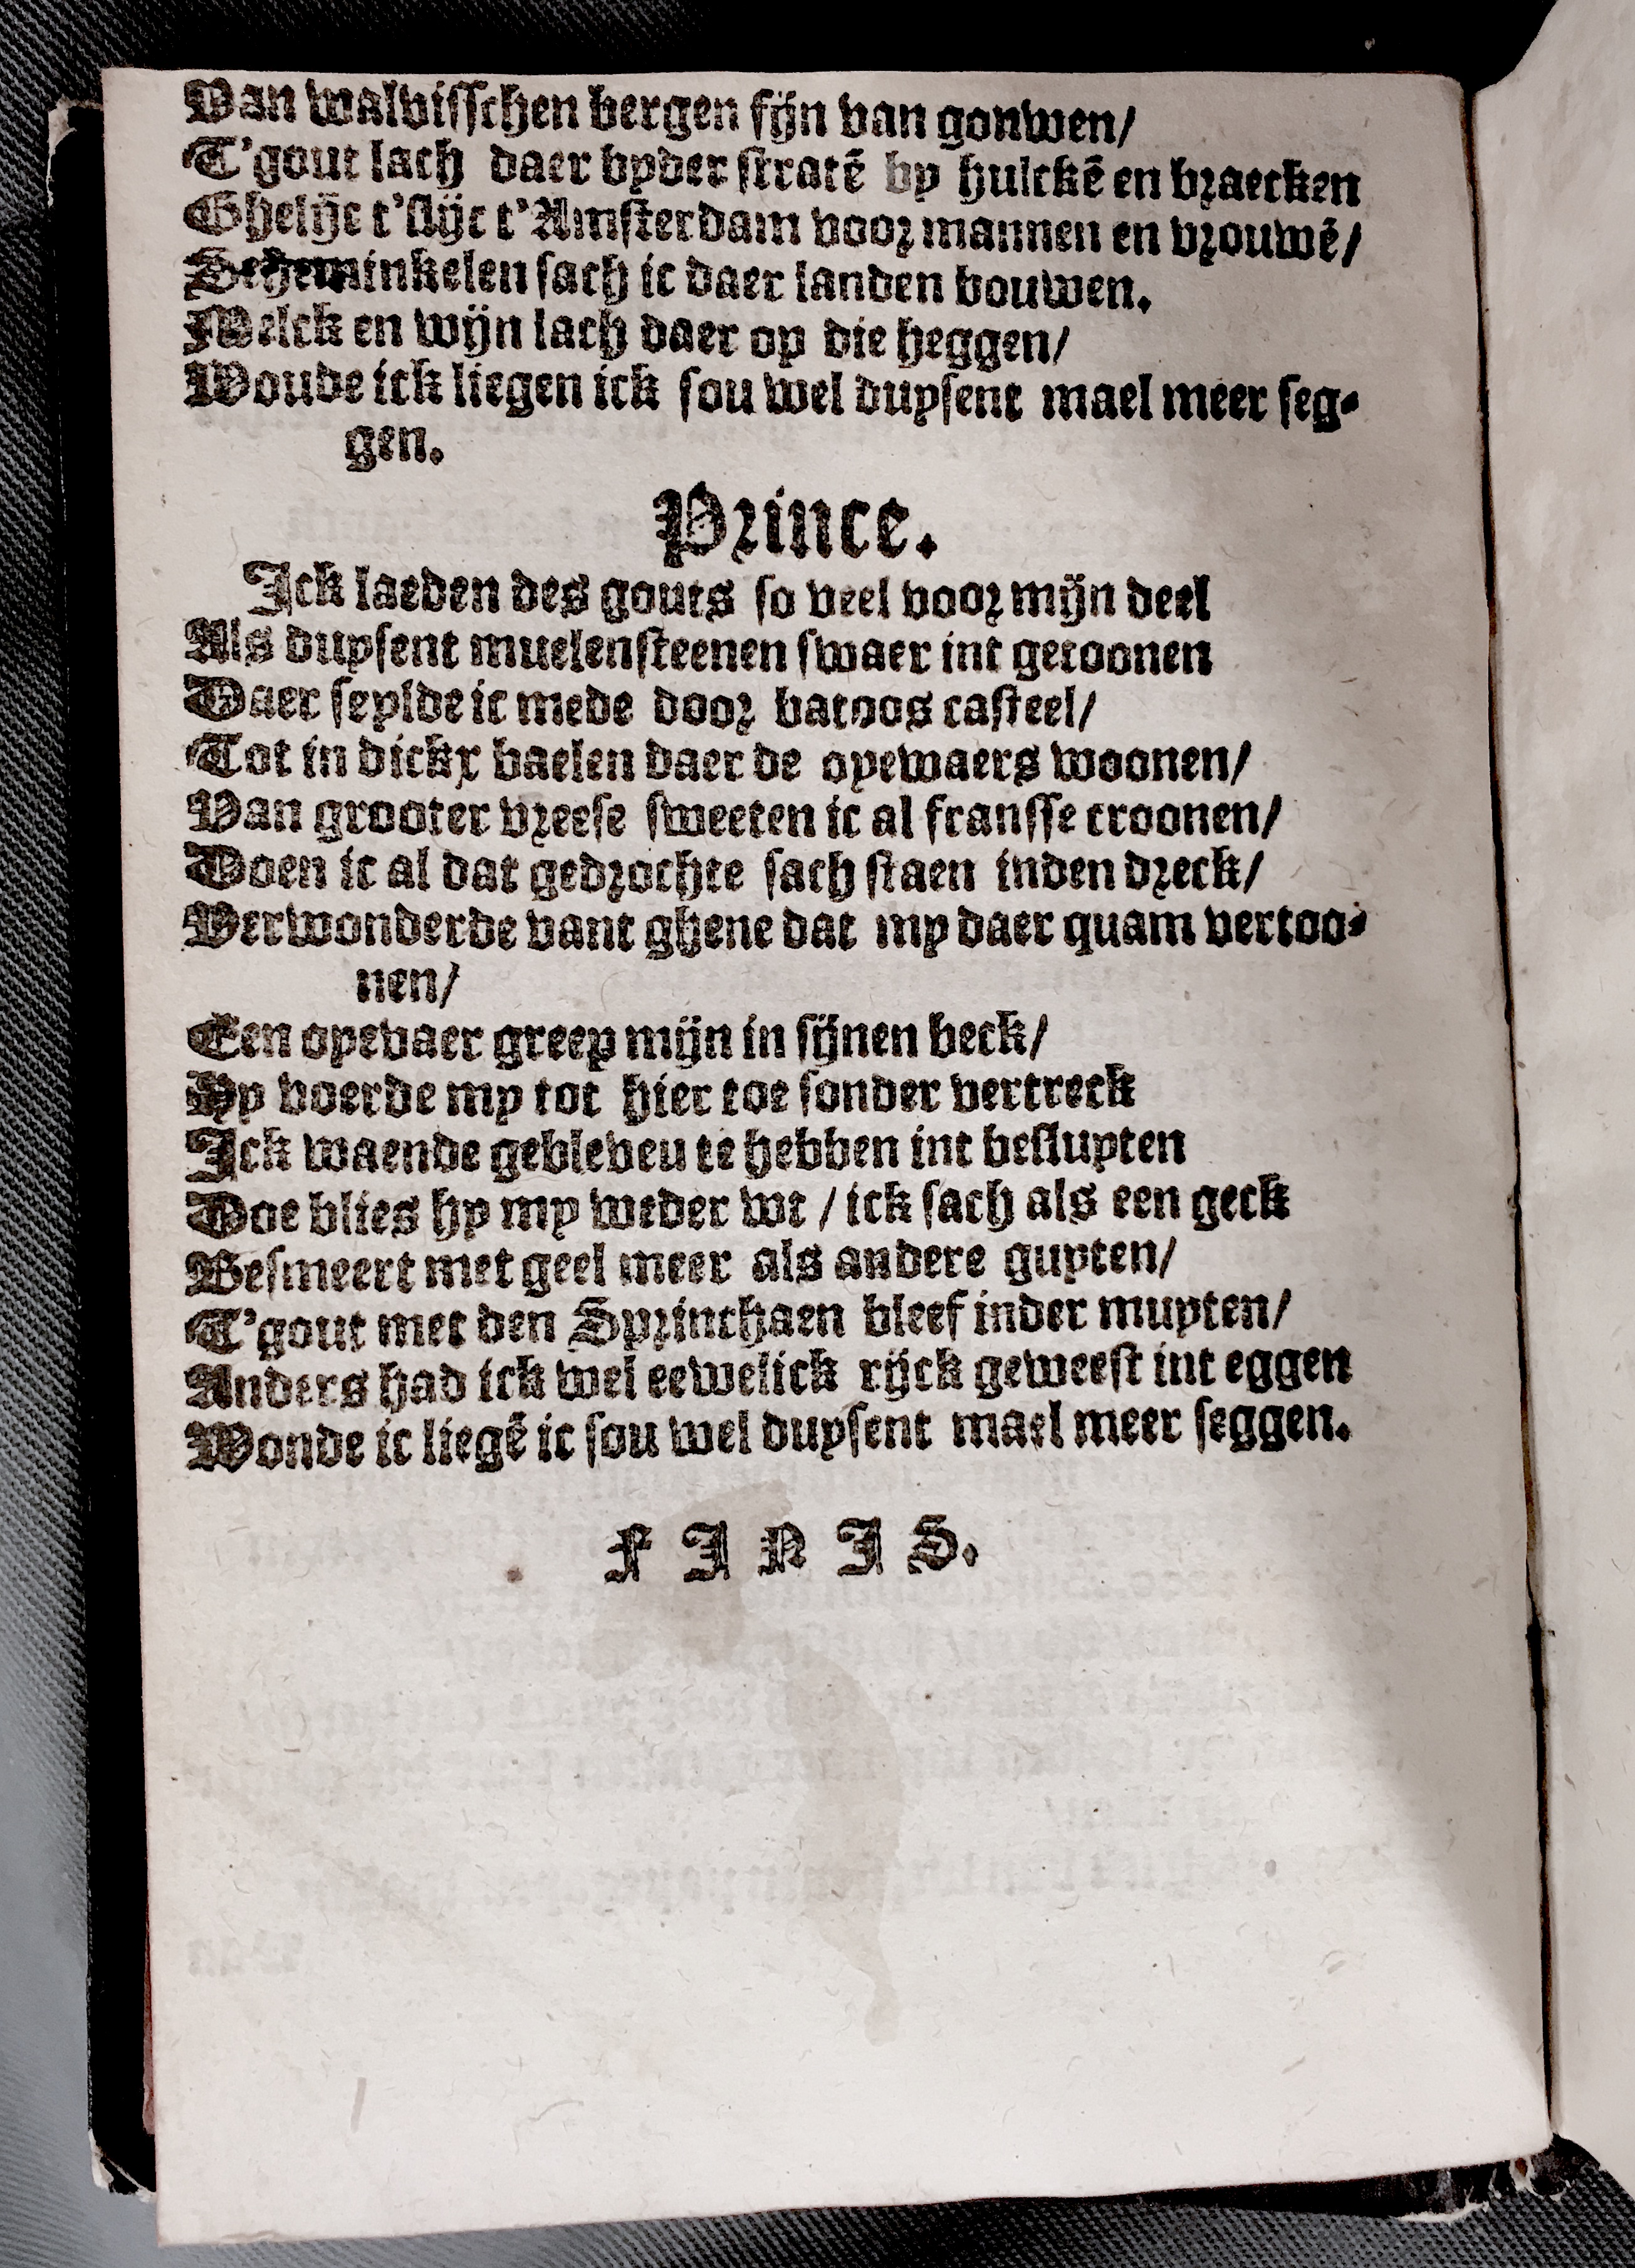 Van walvisschen bergen sijn van gonwen/
T'gout lach daer vpder stratē by hulckē en braecken
Ghelijc t'slijc t'Amsterdam voor mannen en vrouwē/
Scheminkelen sach ic daer landen bouwen.
Melck en wijn lach daer op die heggen/
Woude ick liegen ick sou wel duysent mael meer seg-
gen.
Prince.
Ick laeden des gouts so veel voor mijn deel
Als duysent muelensteenen swaer int getoonen
Daer seylde ic mede door casteel/
Tot in baelen daer de opewaers woonen/
Van grooter vreese sweeten ic al fransse croonen/
Doen ic al dat gedrochte sach staen inden dreck/
Verwonderde vant ghene dat my daer quam vertoo-
nen/
Een opevaer greep mijn in sijnen beck/
Hy voerde my tot hier toe sonder vertreck
Ick waende gebleveu te hebben int besluyten
Doe blies hy my weder wt / ick sach als een geck
Besmeert met geel meer als andere guyten/
T'gout met den Sprinchaen bleef inder muyten/
Anders had ick wel eewelick rijck geweest int eggen
Wonde ic liegē ic sou wel duysent mael meer seggen.
FINIS.